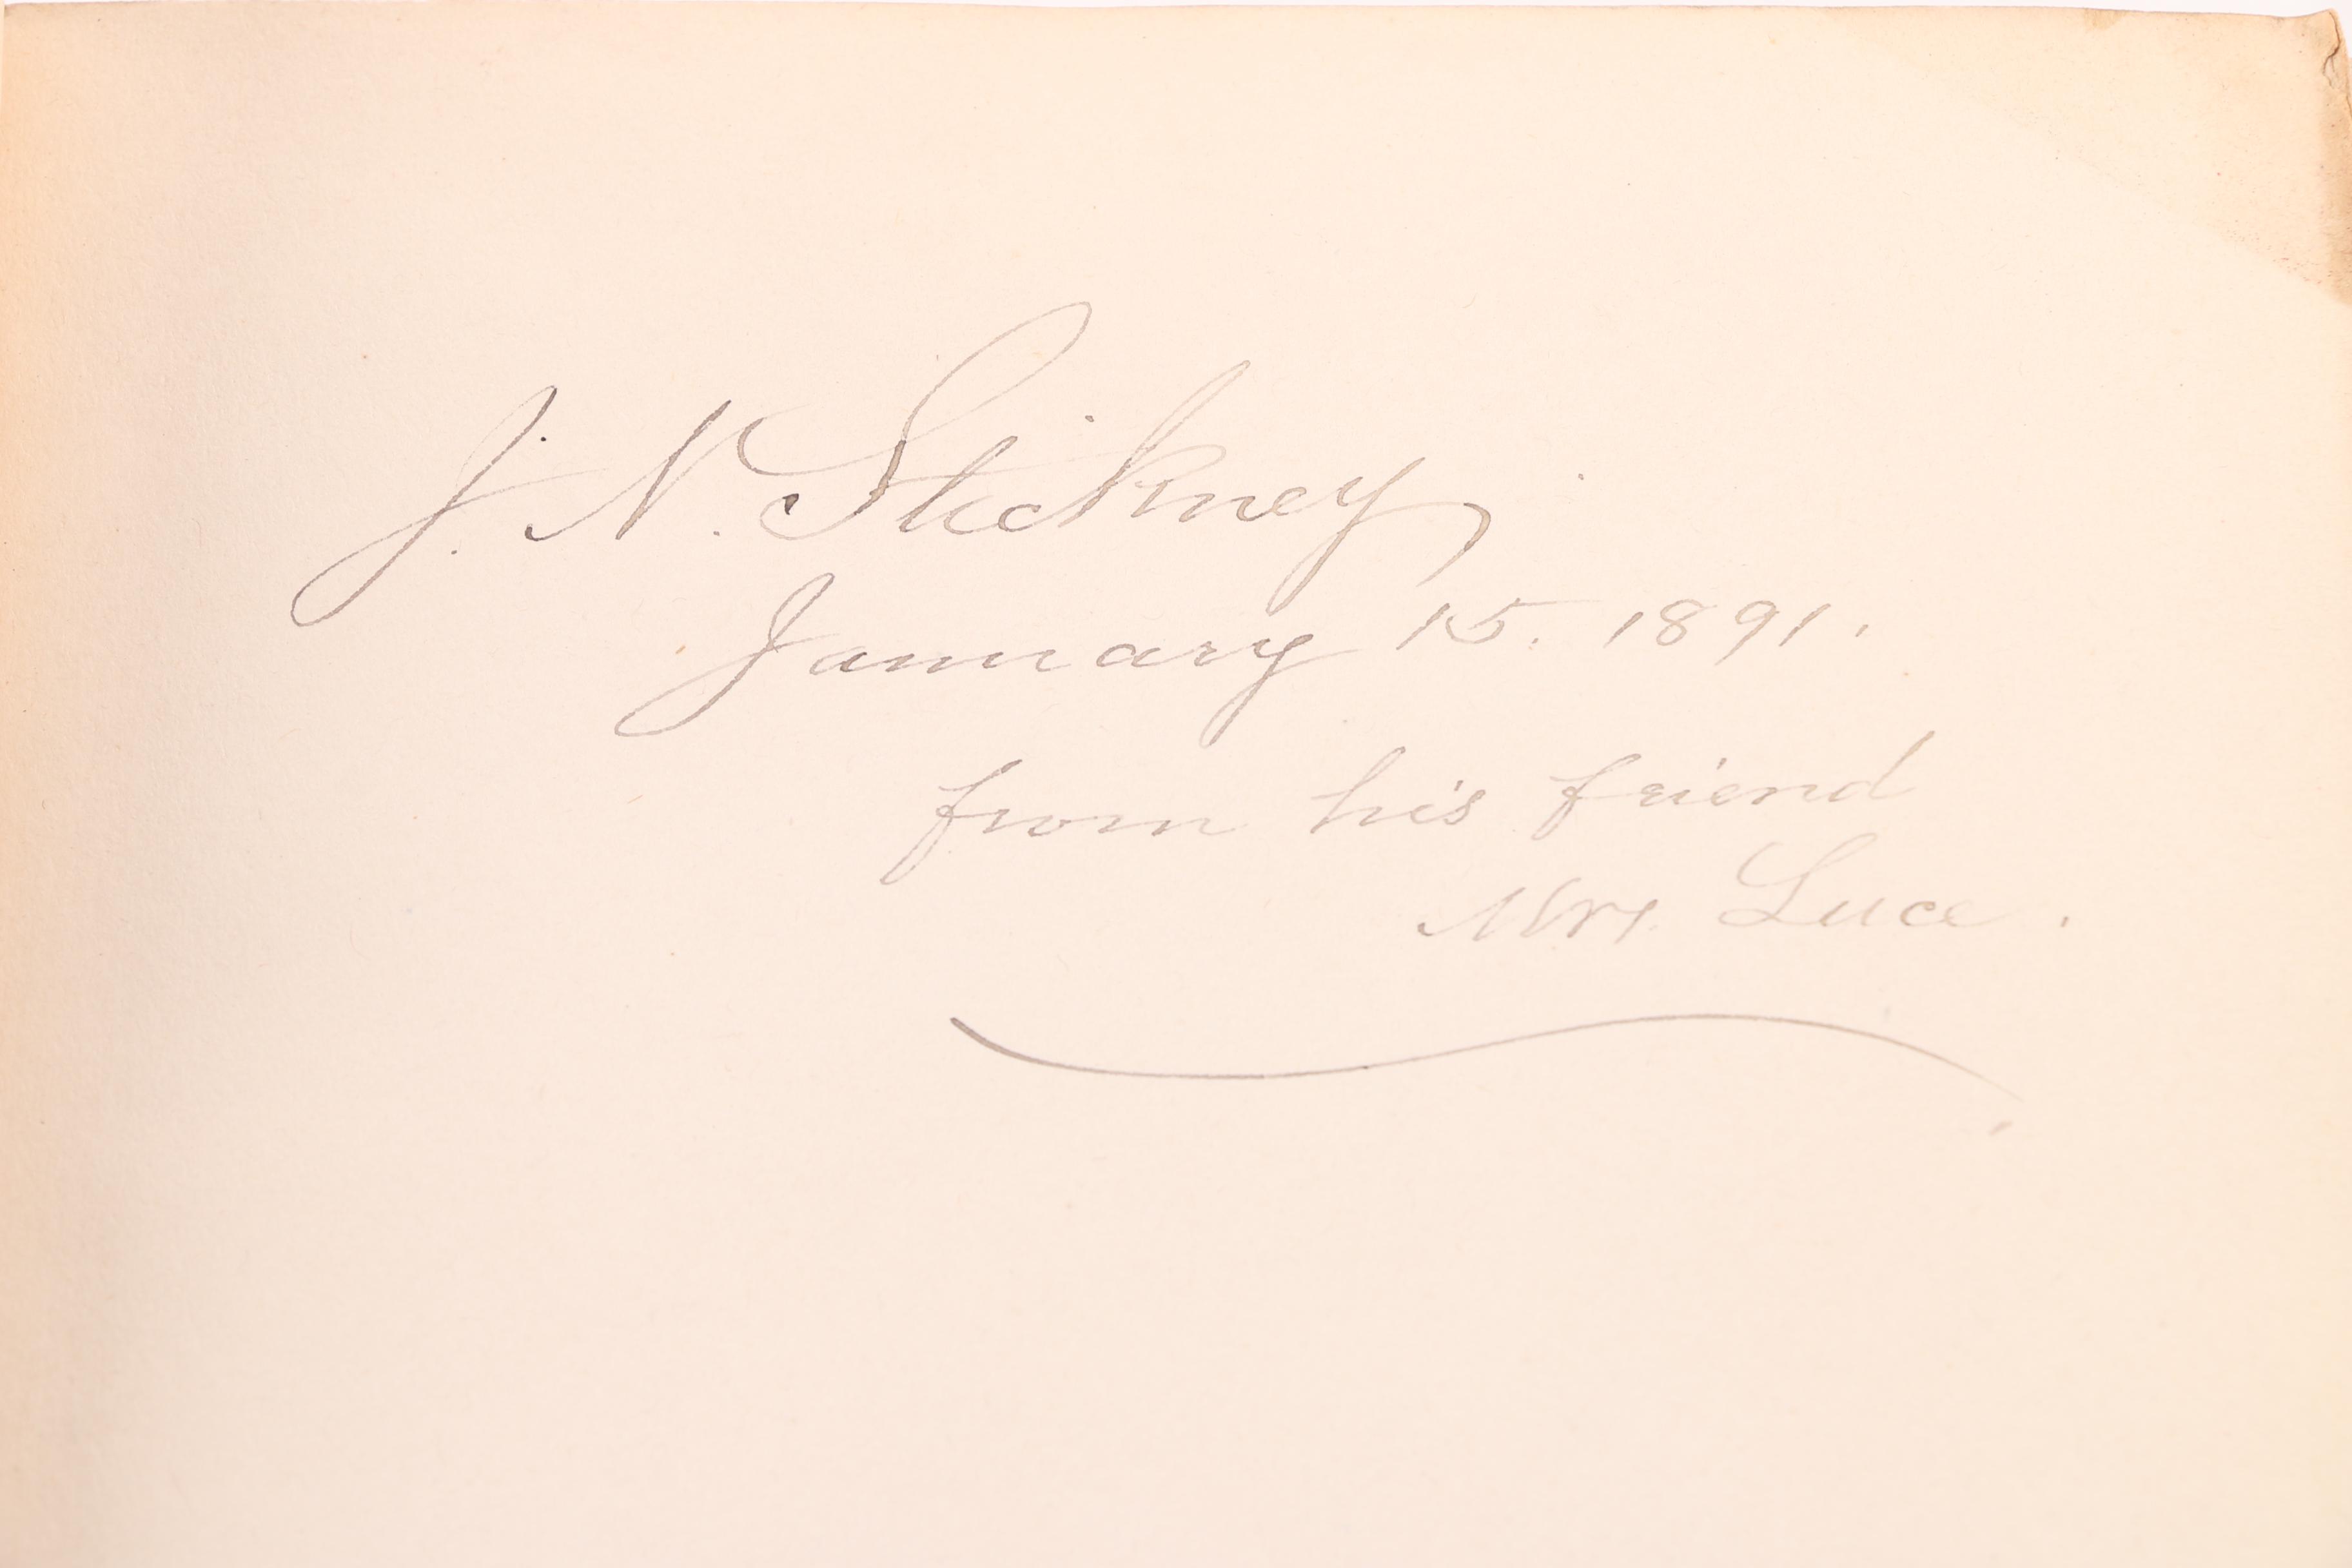 J. N. Stickney
January 15. 1891.
from his friend
Mrs. Luce.